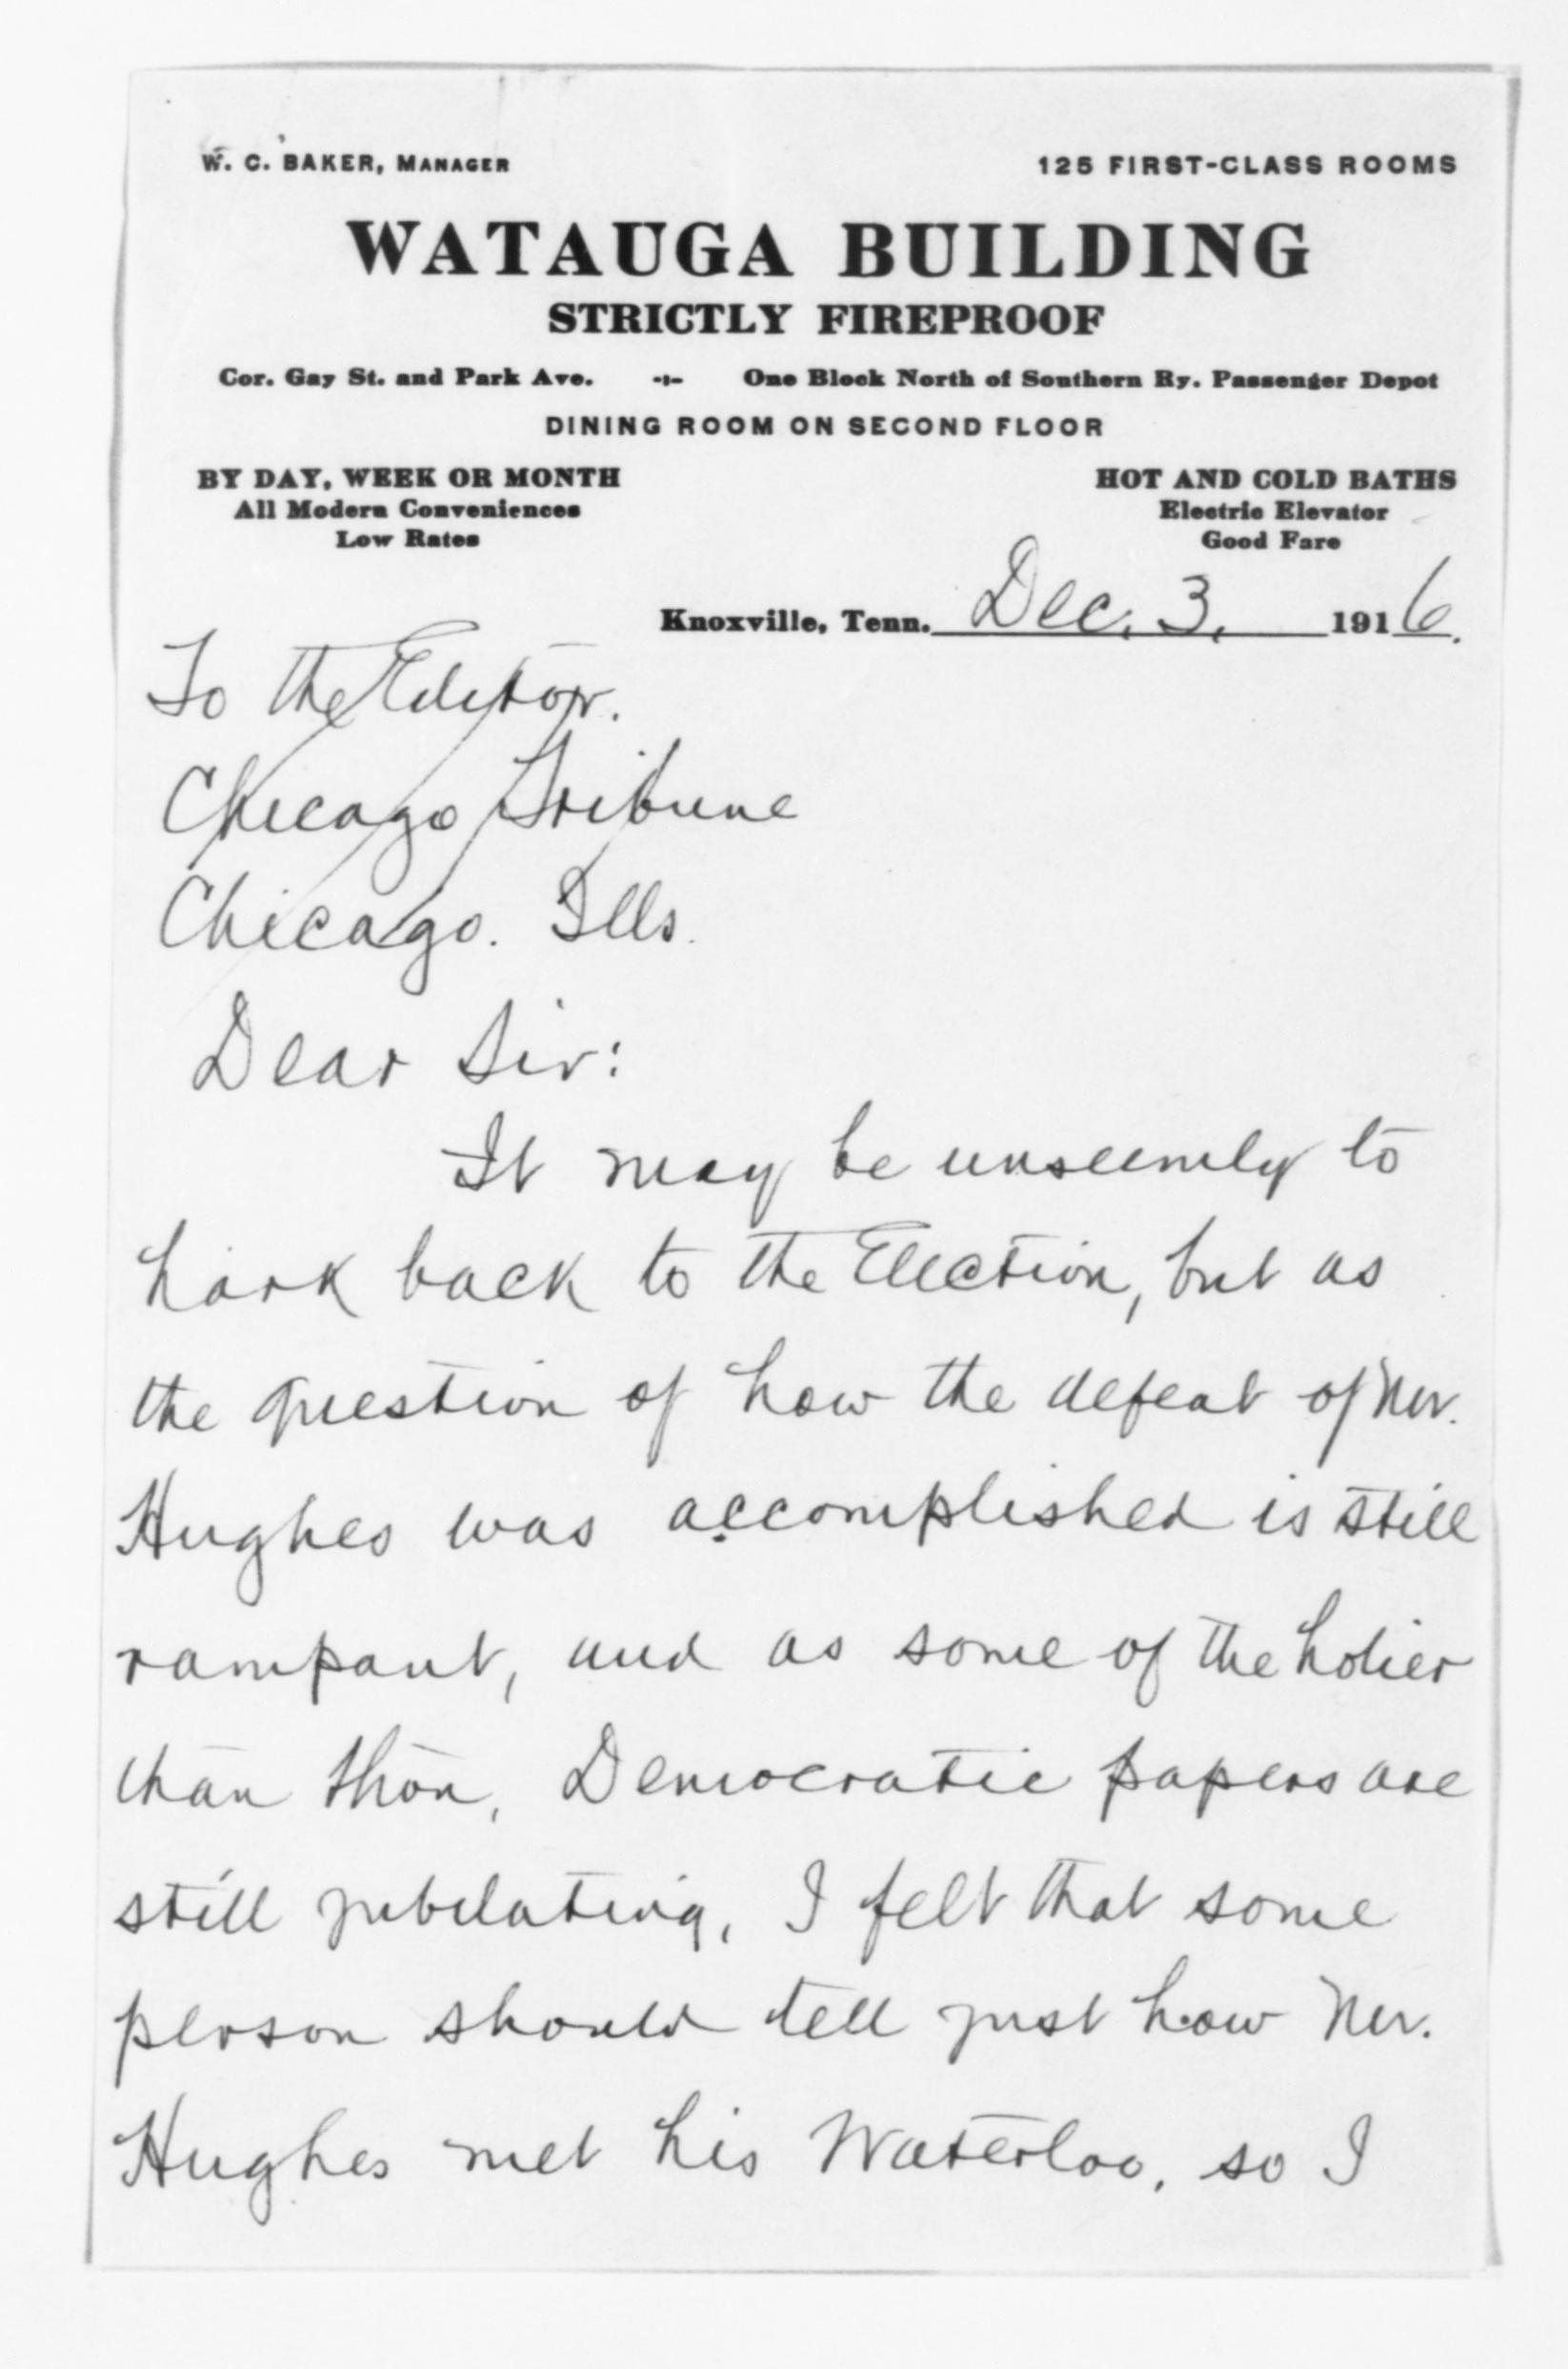 W. C. BAKER, MANAGER 125 FIRST-CLASS ROOMS
WATAUGA BUILDING
STRICTLY FIREPROOF
Cor. Gay St. and Park Ave. -:- One Block North of Southern Ry. Passenger Depot
DINING ROOM ON SECOND FLOOR
BY DAY, WEEK OR MONTH HOT AND COLD BATHS
All Modern Conveniences Electric Elevator
Low Rates Good Fare
Knoxville, Tenn. Dec. 3, 1916.
To the Editor.
Chicago Tribune
Chicago. Ills.
Dear Sir:
It may be unseemly to
hark back to the Election, but as
the question of how the defeat of Mr.
Hughes was accomplished is still
rampant, and as some of the holier
than thou, Democratic papers are
still jubilating, I felt that some
person should tell just how Mr.
Hughes met his Waterloo, so I